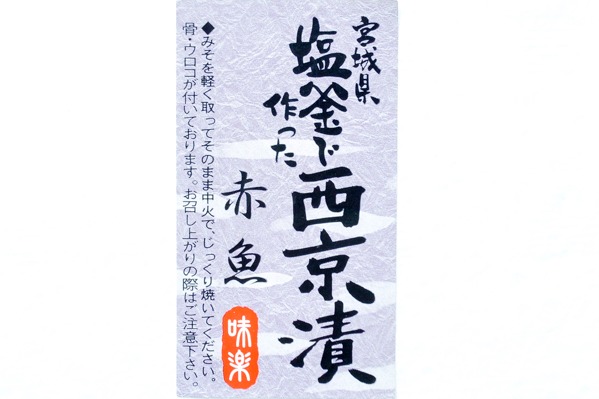 宮城県
塩釜で
作った
西京漬
赤魚
味楽
◆みそを軽く取ってそのまま中火で、じっくり焼いてください。
骨・ウロコが付いております。お召し上がりの際はご注意下さい。